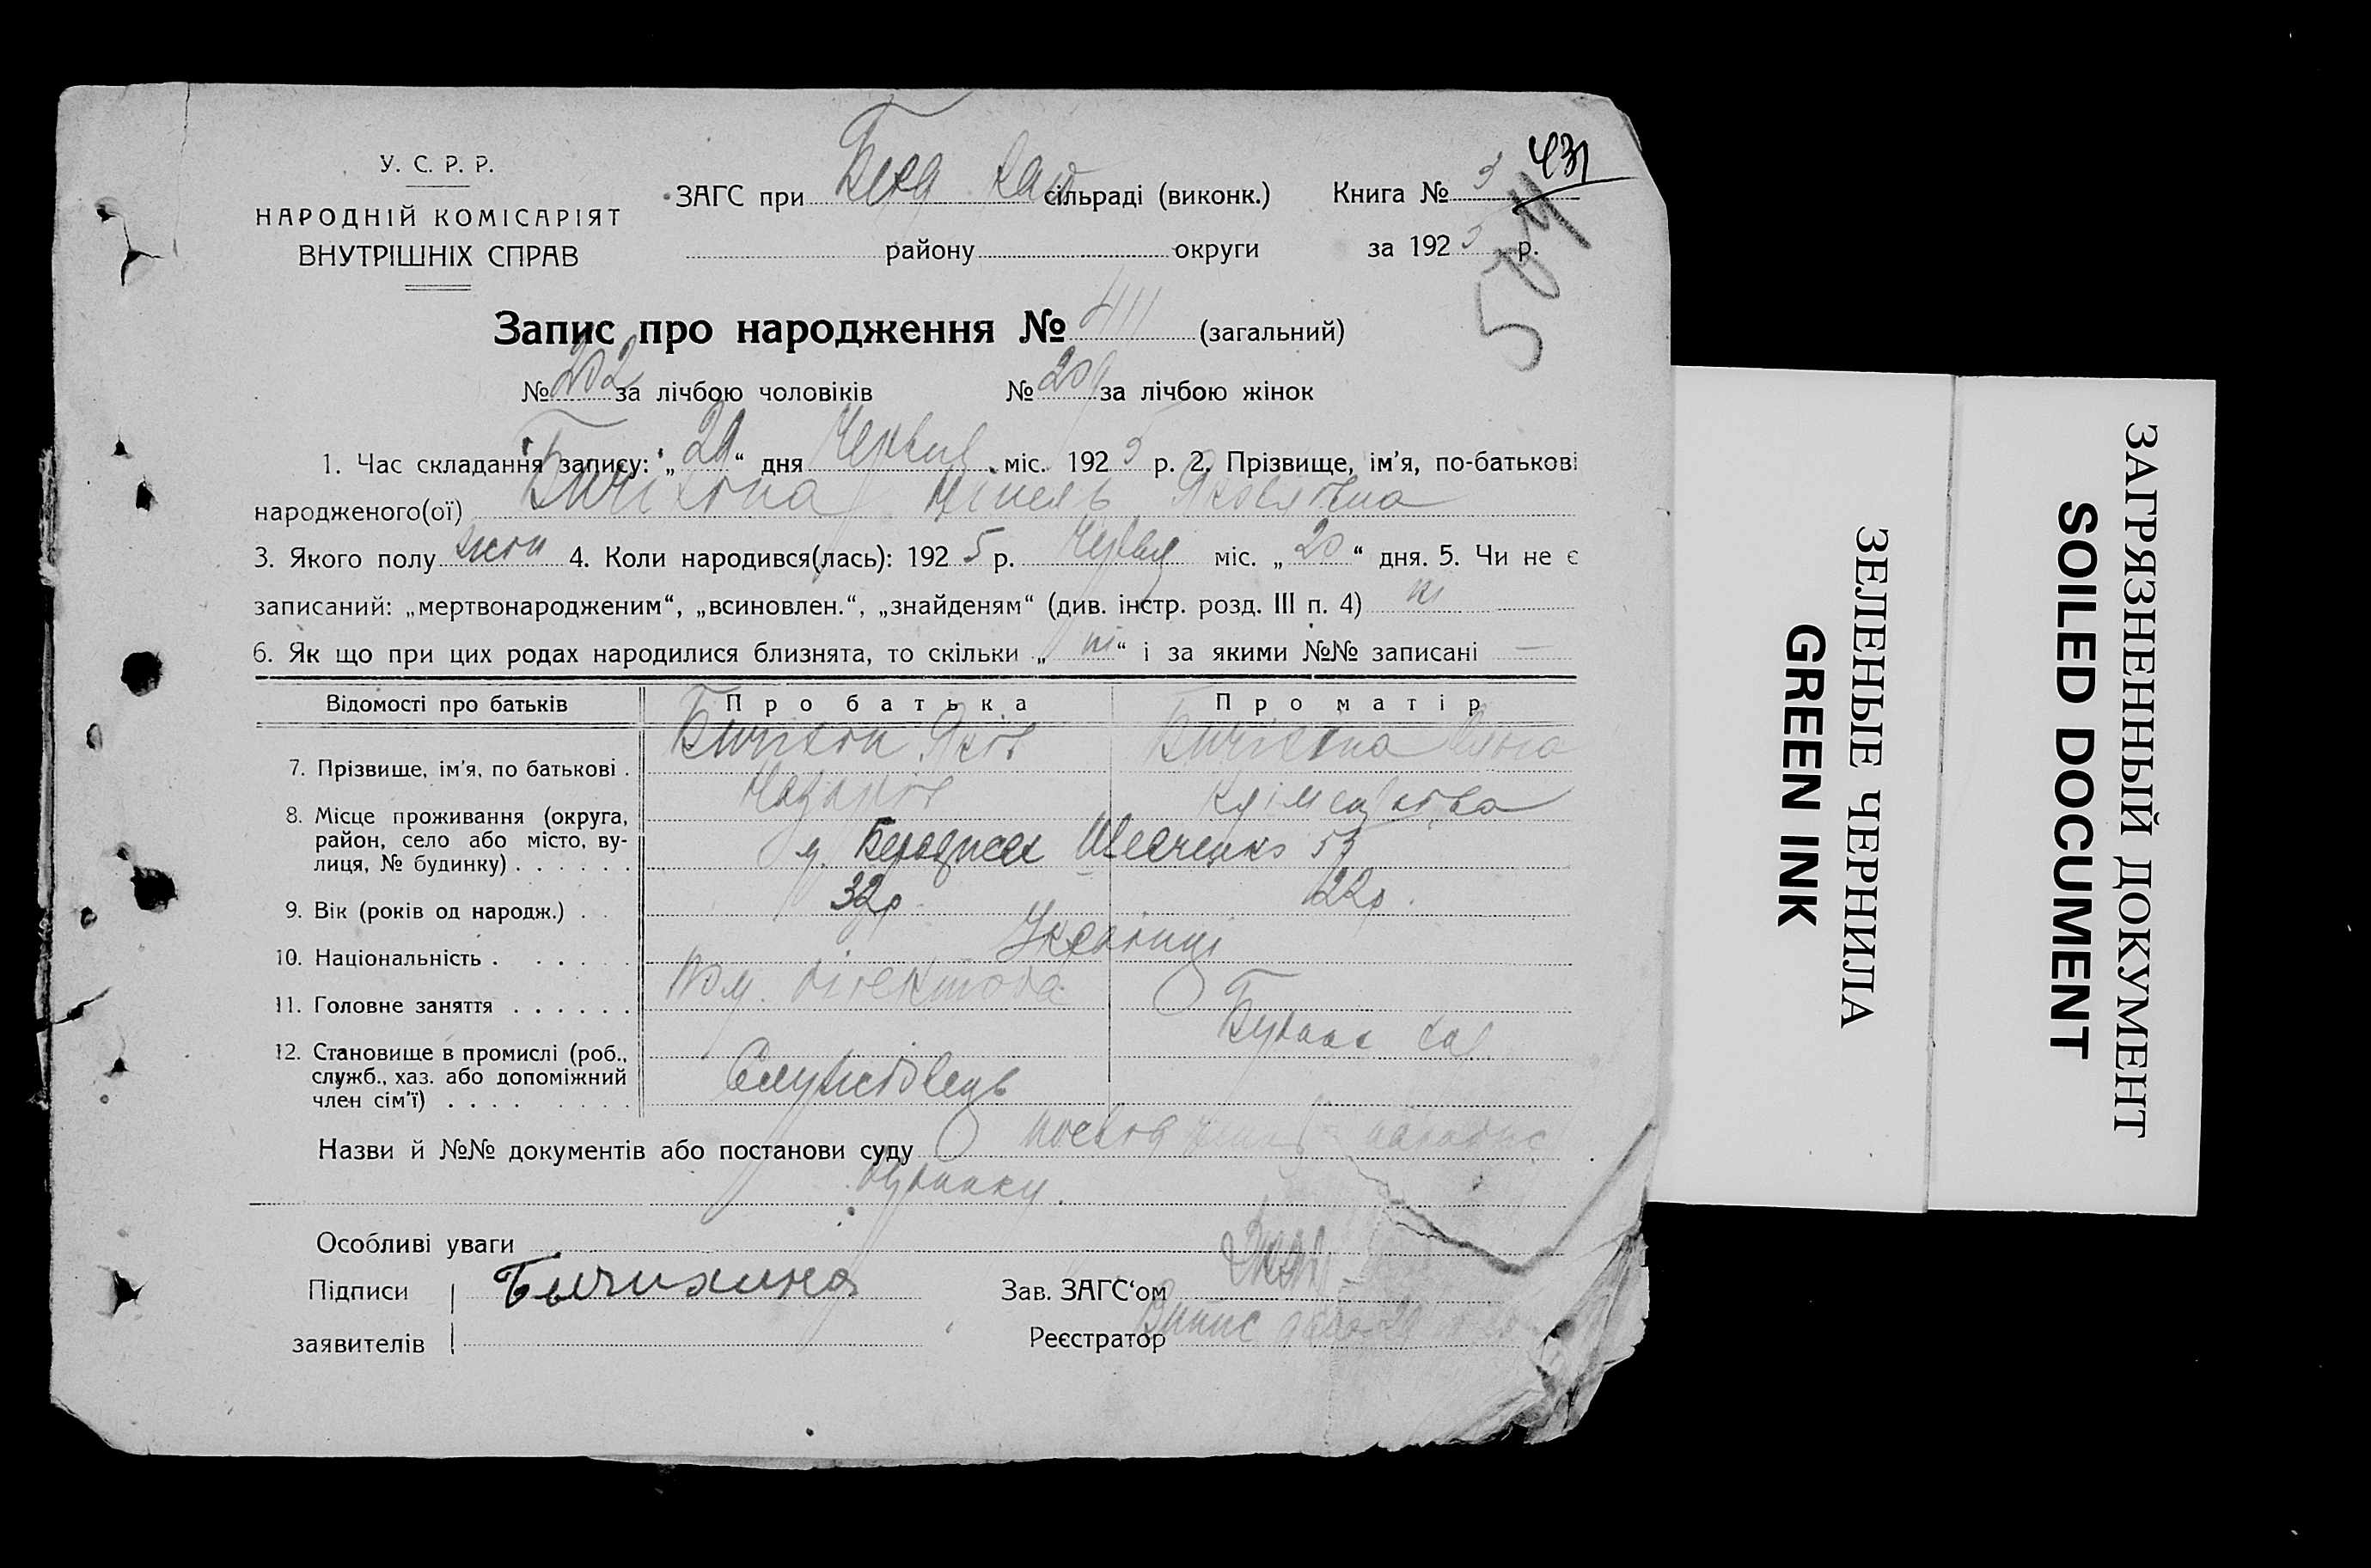 У. С. Р. Р.
НАРОДНІЙ КОМІСАРІЯТ
ВНУТРІШНІХ СПРАВ
ЗАГС при сільраді (виконк.) Книга № 431
району округи за 1925 р.
504
Запис про народження № 411 (загальний)
№ 202 за лічбою чоловіків № 209 за лічбою жінок
1. Час складання запису: „ “ дня Червня міс. 1925 р. 2. Прізвище, ім’я, по-батькові
народженого(ої) Бичіхіна Нінель Яковлівна
3. Якого полу жін 4. Коли народився(лась): 1925 р. Червня міс. „20“ дня. 5. Чи не є
записаний: „мертвонародженим“, „всиновлен.“, „знайденям“ (див. інстр. розд. III п. 4) ні
6. Як що при цих родах народилися близнята, то скільки „ні“ і за якими №№ записані —
Відомості про батьків Про батька Про матір
7. Прізвище, ім’я, по батькові . Бичіхін Яків Бичіхіна
8. Місце проживання (округа,
район, село або місто, ву-
лиця, № будинку) . . . . . . м. Шевченко 53
9. Вік (років од народж.) . . 32р. 22р.
10. Національність . . . . . Українці
11. Головне заняття . . . . . . Пом. директора
12. Становище в промислі (роб.,
служб., хаз. або допоміжний
член сім’ї) . . . . . . . . . Службовець
Назви й №№ документів або постанови суду посвід
будинку.
Особливі уваги
Підписи Бычихина Зав. ЗАГС‘ом
заявителів Реєстратор Випис
ЗЕЛЕНЫЕ ЧЕРНИЛА
GREEN INK
ЗАГРЯЗНЕННЫЙ ДОКУМЕНТ
SOILED DOCUMENT